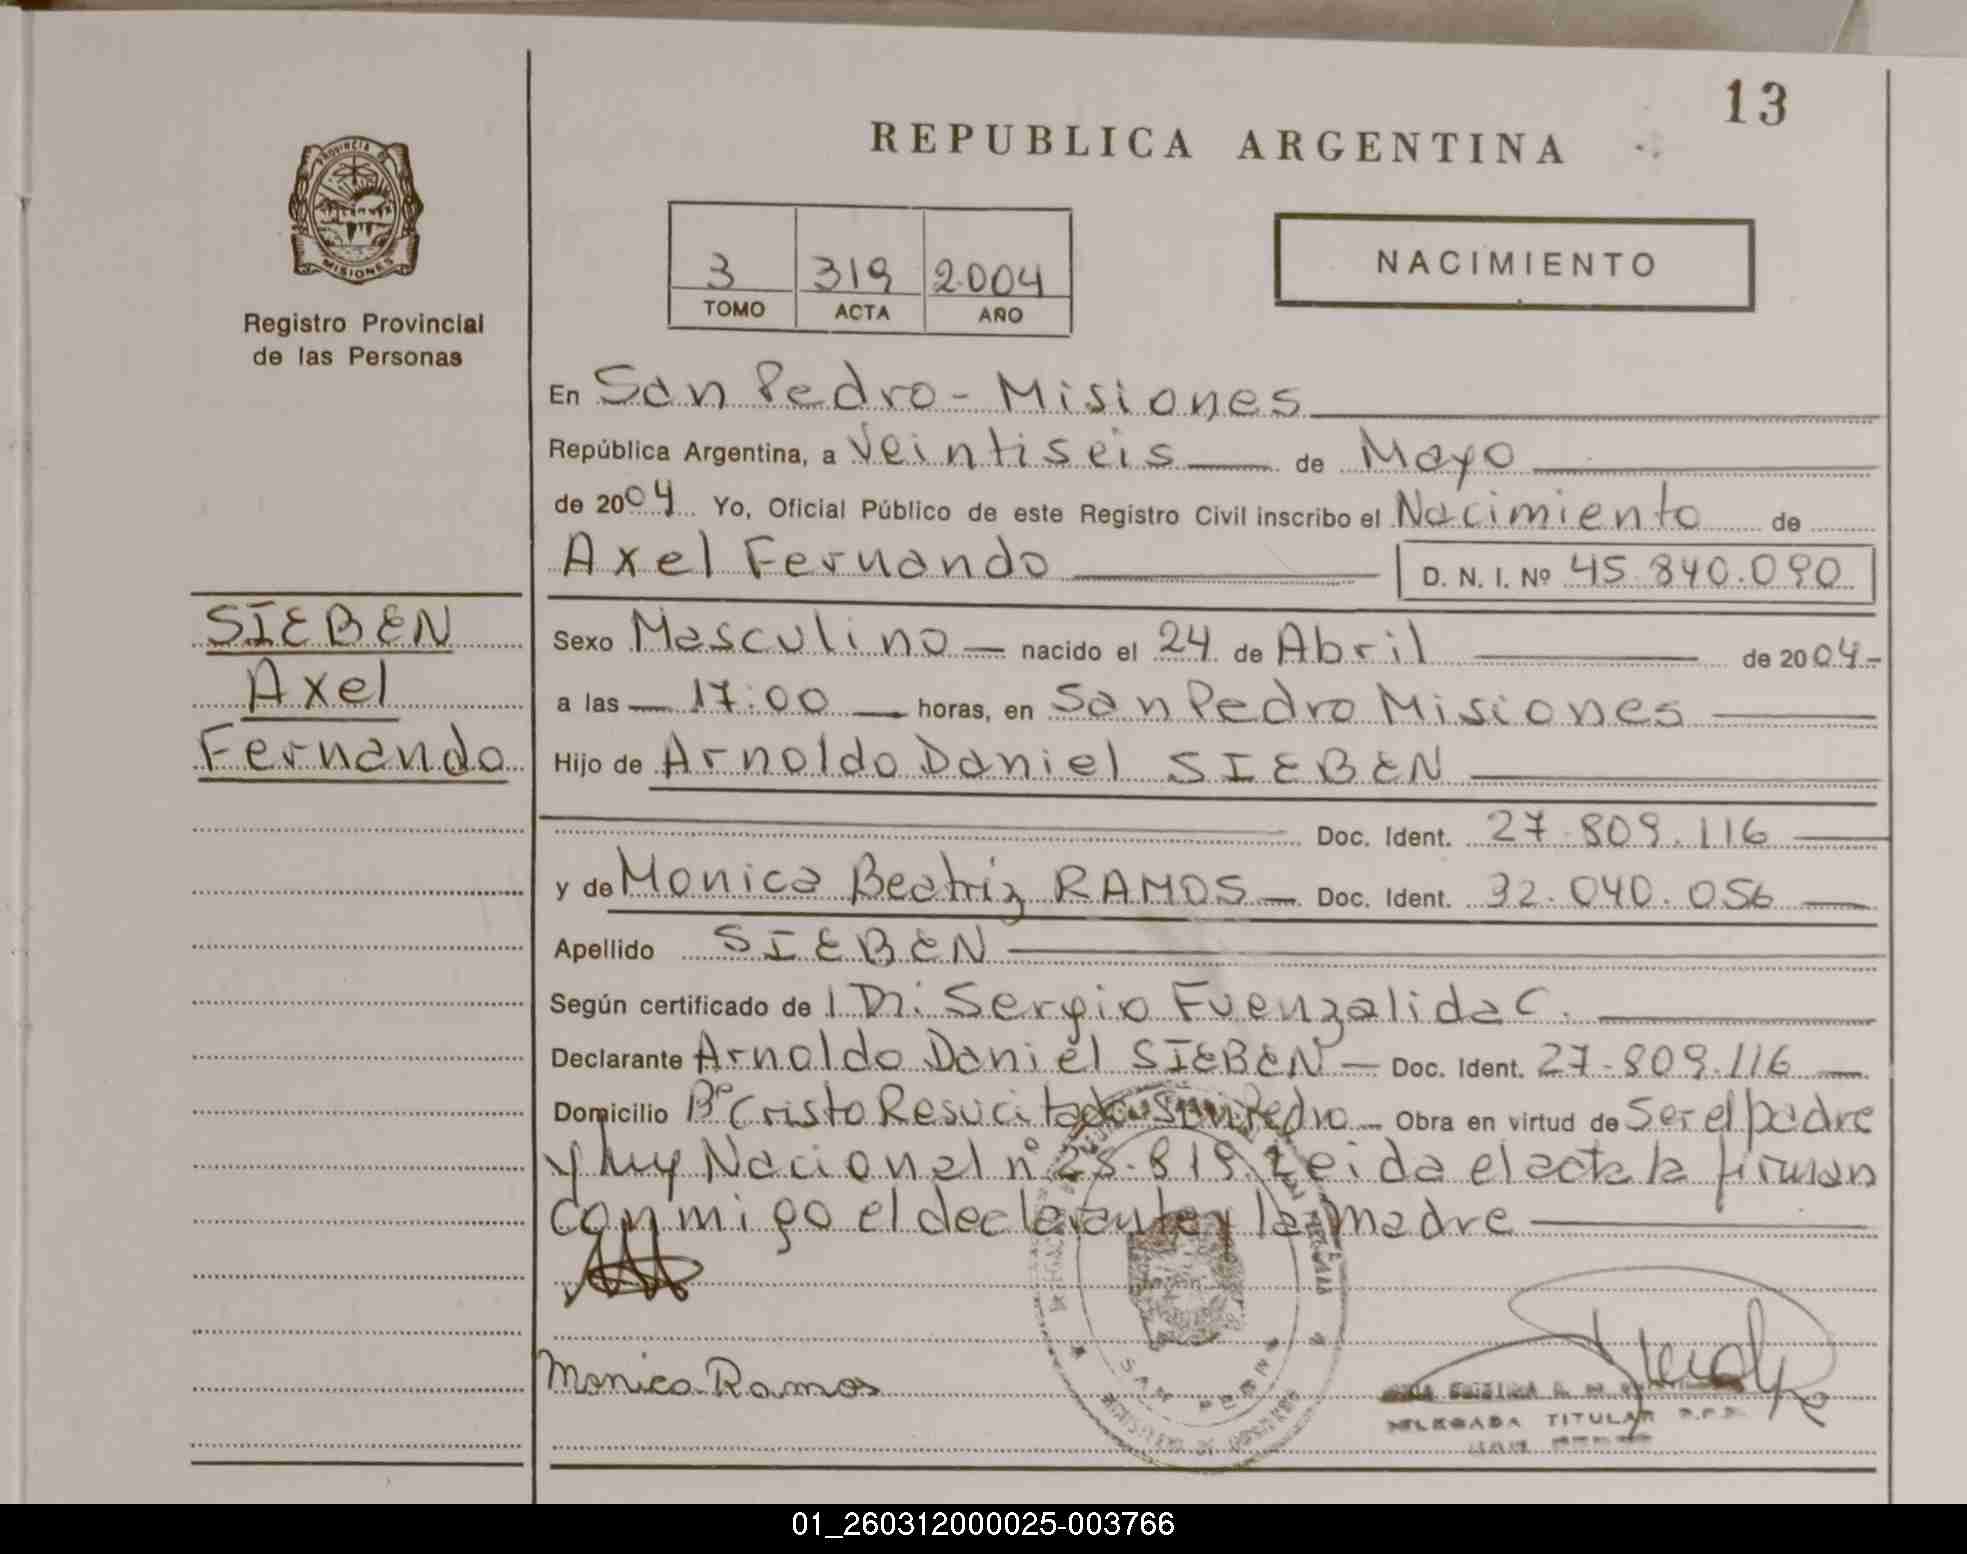 13
REPUBLICA ARGENTINA
PROVINCIA DE
MISIONES
Registro Provincial
de las Personas
3 319 2.004
TOMO ACTA AÑO
NACIMIENTO
En San Pedro - Misiones
República Argentina, a Veintiseis de Mayo
de 2004 Yo, Oficial Público de este Registro Civil inscribo el Nacimiento de
Axel Fernando D. N. I. Nº 45.840.090
SIEBEN
Axel
Fernando
Sexo Masculino nacido el 24 de Abril de 2004.-
a las 17:00 horas, en San Pedro Misiones
Hijo de Arnoldo Daniel SIEBEN
Doc. Ident. 27.809.116
y de Monica Beatriz RAMOS Doc. Ident. 32.040.056
Apellido SIEBEN
Según certificado de Dr. Sergio Fuenzalida C.
Declarante Arnoldo Daniel SIEBEN Doc. Ident. 27.809.116
Domicilio Bº Cristo Resucitado San Pedro Obra en virtud de Ser el padre
y Ley Nacional nº Leida el acta la firman
conmigo el declarante y la madre
Monica Ramos
SAN PEDRO
DELEGADA TITULAR R.P.P.
SAN PEDRO
01_260312000025-003766